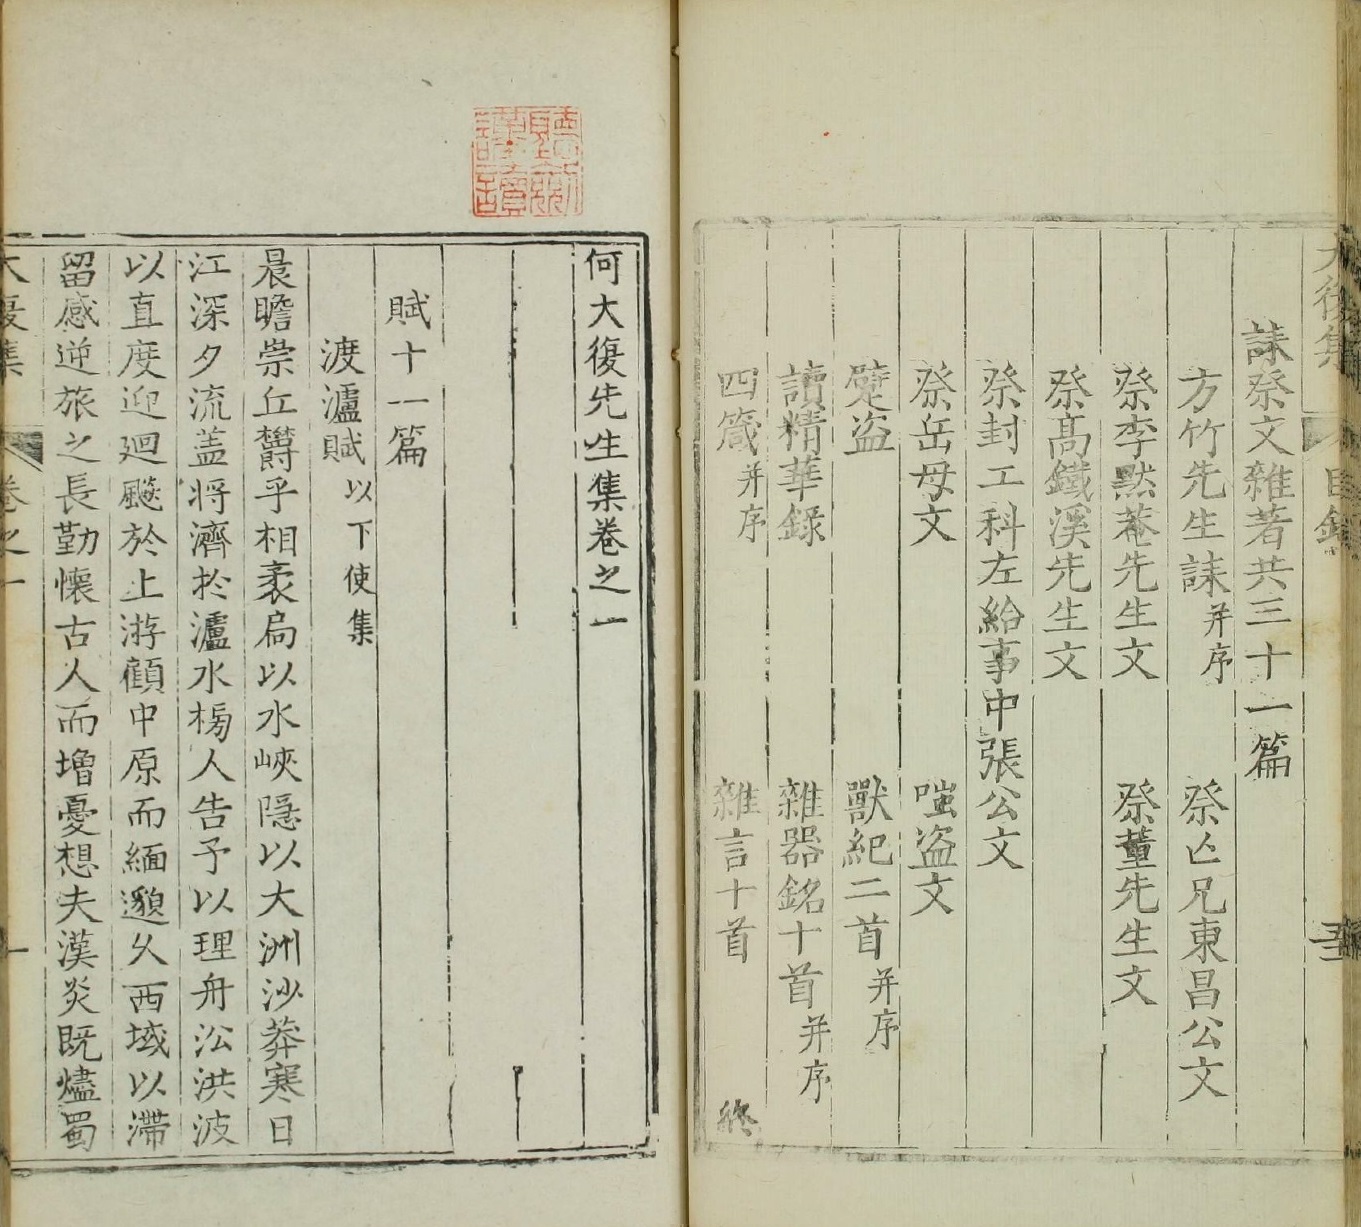 大復集 目錄
誄祭文雜著共三十一篇
方竹先生誄并序 祭亡兄東昌公文
祭李默菴先生文 祭董先生文
祭髙鐵溪先生文
祭封工科左給事中張公文
祭岳母文 嗤盗文
躄盗 獸紀二首并序
讀精華録 雜器銘十首并序
四箴并序 雜言十首 終
何大復先生集卷之一
賦十一篇
渡瀘賦以下使集
晨瞻崇丘欝乎相袤扃以水峽隱以大洲沙莽寒日
江深夕流盖将濟扵瀘水榜人告予以理舟㳂洪波
以直度迎廻飈於上游顧中原而緬邈乆西域以滯
留感逆旅之長勤懷古人而増憂想夫漢炎既燼蜀
大復集 卷之一 一